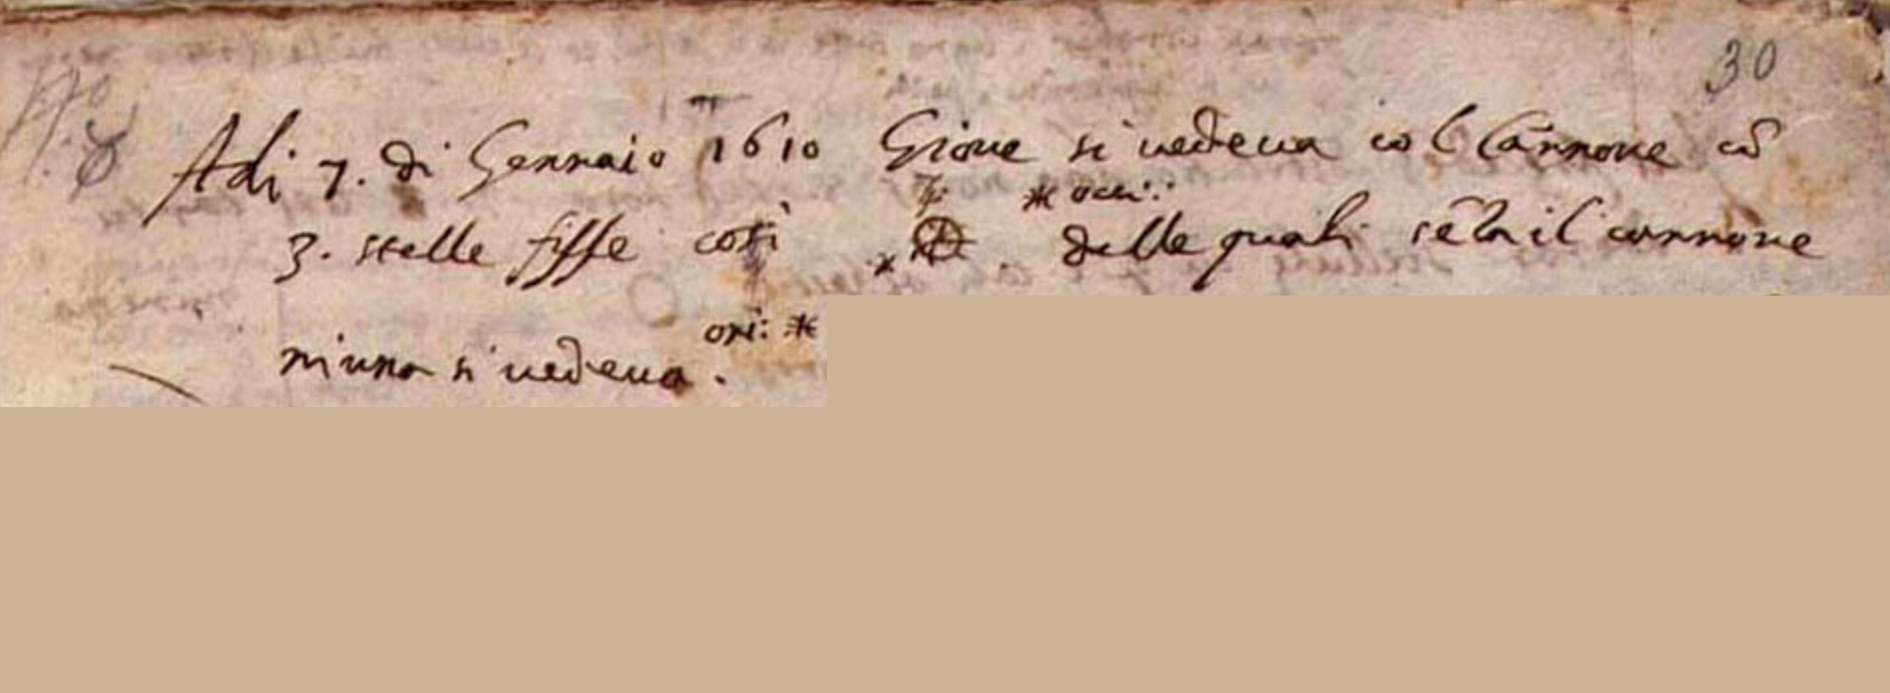 30
Adi 7. di Gennaio 1610 Giove si vedeva col Cannone cō
3. stelle fisse così delle quali sēza il cannone
* occi:
ori: *
niuna si vedeva.